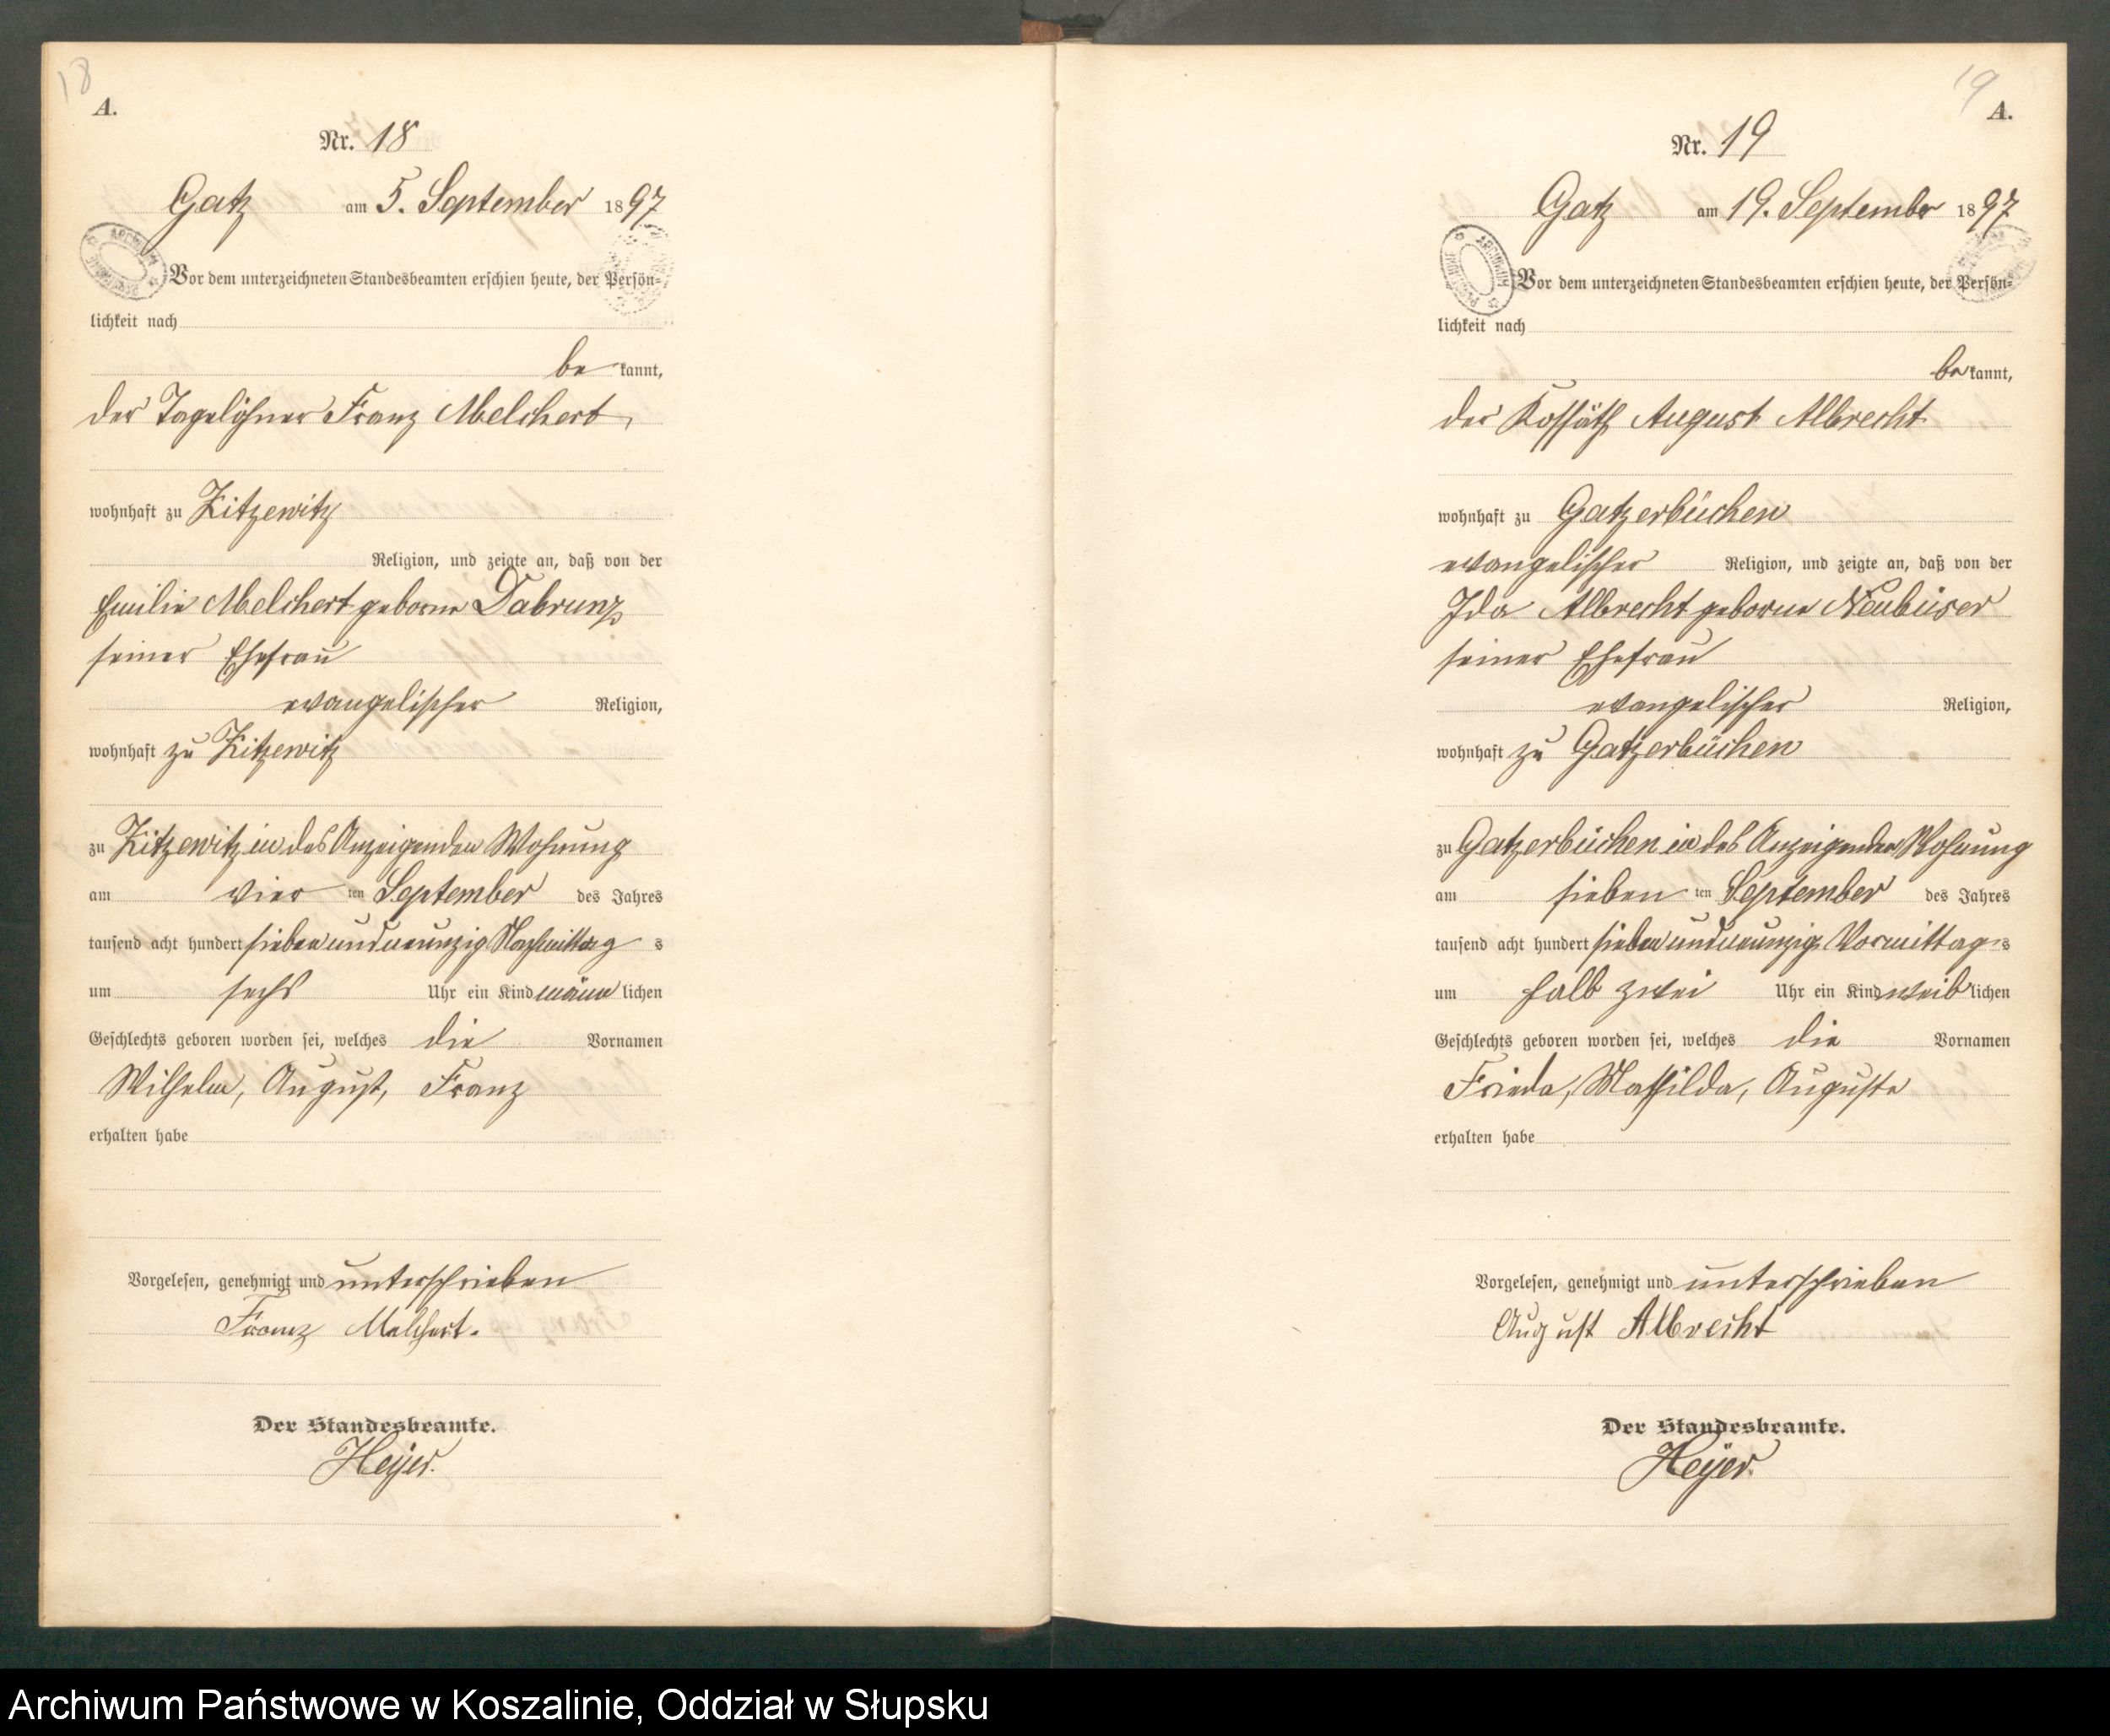 18
A.
Nr. 18
Gatz am 5. September 1897
Vor dem unterzeichneten Standesbeamten erschien heute, der Persön-
lichkeit nach
be kannt,
der Tagelöhner Franz Melchert
wohnhaft zu Zitzewitz
Religion, und zeigte an, daß von der
Emilie Melchert geborne Dabrunz
seiner Ehefrau
evangelischer Religion,
wohnhaft zu Zitzewitz
zu Zitzewitz in des Anzeigenden Wohnung
am vier ten September des Jahres
tausend acht hundert siebenundneunzig Nachmittag s
um sechs Uhr ein Kind männ lichen
Geschlechts geboren worden sei, welches die Vornamen
Wilhelm, August, Franz
erhalten habe
Vorgelesen, genehmigt und unterschrieben
Franz Melchert.
Der Standesbeamte.
Heyer.
19
A.
Nr. 19
Gatz am 19. September 1897
Vor dem unterzeichneten Standesbeamten erschien heute, der Persön-
lichkeit nach
be kannt,
der Kossäth August Albrecht
wohnhaft zu Gatzerbüchen
evangelischer Religion, und zeigte an, daß von der
Ida Albrecht geborne Neubüser
seiner Ehefrau
evangelischer Religion,
wohnhaft zu Gatzerbüchen
zu Gatzerbüchen in des Anzeigenden Wohnung
am sieben ten September des Jahres
tausend acht hundert siebenundneunzig Vormittag s
um halb zwei Uhr ein Kind weib lichen
Geschlechts geboren worden sei, welches die Vornamen
Frieda, Mathilda, Auguste
erhalten habe
Vorgelesen, genehmigt und unterschrieben
August Albrecht
Der Standesbeamte.
Heyer.
Archiwum Państwowe w Koszalinie, Oddział w Słupsku